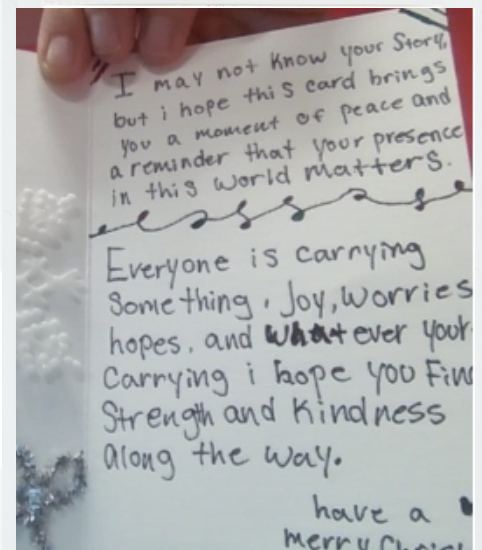 I may not know your Story,
but i hope this card brings
you a moment of peace and
a reminder that your presence
in this world matters.
Everyone is carrying
Something, Joy, Worries
hopes, and whatever your
Carrying i hope you Find
Strength and Kindness
along the way.
have a
merry